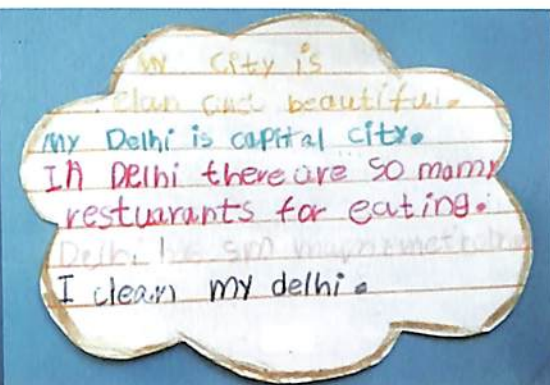 my city is
clan and beautiful.
my Delhi is capital city.
IA Delhi there are so mamy
restuarants for eating.
Delhi
I clean my delhi.